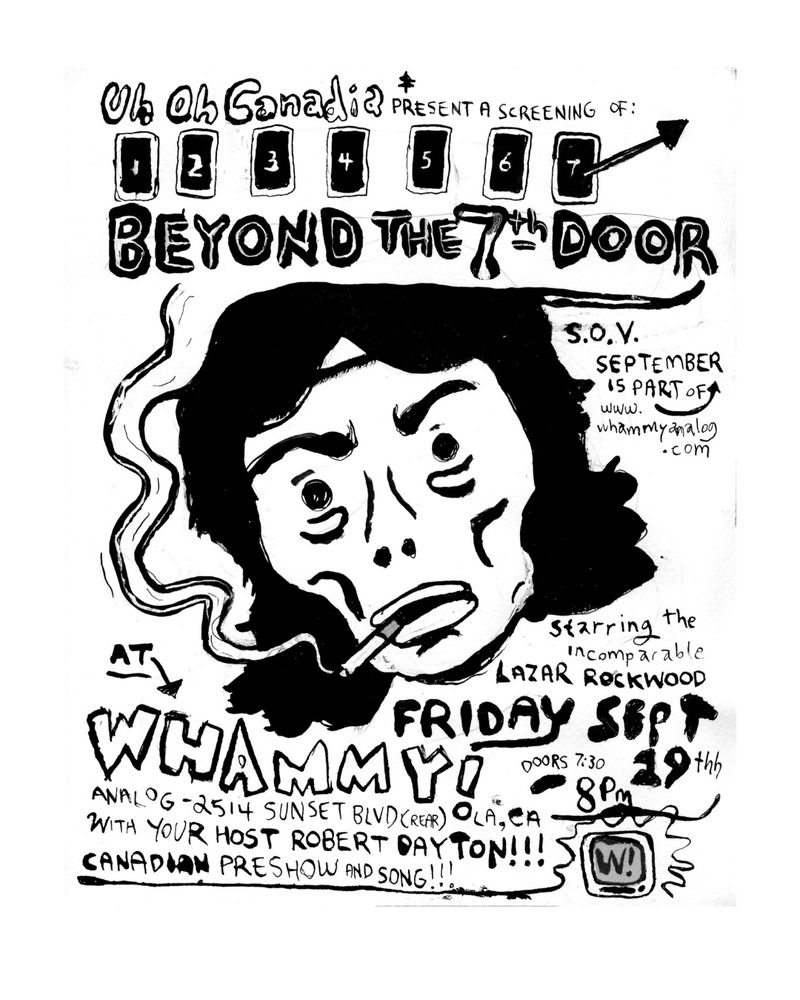 Uh Oh Canadia*
PRESENT A SCREENING OF:
1 2 3 4 5 6 7
BEYOND THE 7th DOOR
S.O.V.
SEPTEMBER
IS PART OF
www.
whammyanalog
.com
starring the
incomparable
LAZAR ROCKWOOD
AT
FRIDAY SEPT
19thh
DOORS 7:30
8Pm
WHAMMY!
ANALOG-2514 SUNSET BLVD (REAR) LA, CA
WITH YOUR HOST ROBERT DAYTON!!!
CANADIAN PRESHOW AND SONG!!!
W!